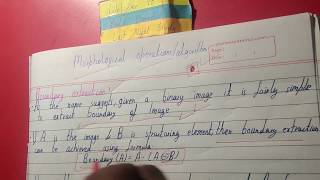 Morphological operation/algorithm
Boundary extraction:
As the name suggests, given a binary image it is fairly simple
to extract boundary of image.
If A is the image & B is structuring element, then boundary extraction
can be achieved using formula
Boundary (A) = A - (A ⊖ B)